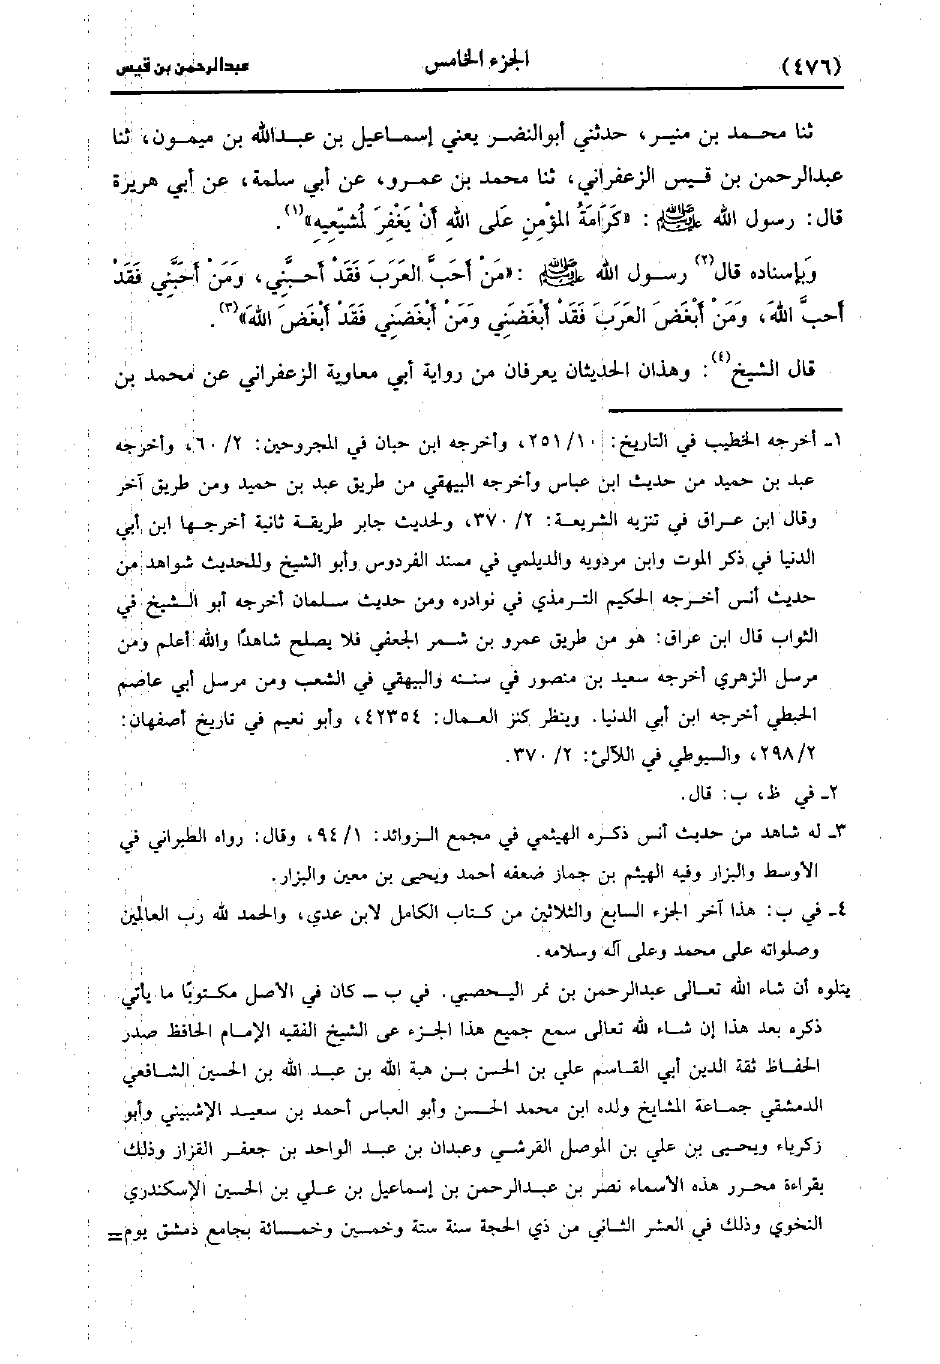 (٤٧٦) الجزء الخامس عبدالرحمن بن قيس
ثنا محمد بن منير، حدثني أبوالنضر يعني إسماعيل بن عبدالله بن ميمون، ثنا
عبدالرحمن بن قيس الزعفراني، ثنا محمد بن عمرو، عن أبي سلمة، عن أبي هريرة
قال: رسول الله ﷺ: «كَرَامَةُ المُؤْمِنِ عَلَى اللهِ أَنْ يَغْفِرَ لِمُشَيِّعِيهِ»(١).
وَبإسناده قال(٢) رسول الله ﷺ: «مَنْ أَحَبَّ العَرَبَ فَقَدْ أَحبَّنِي، وَمَنْ أَحَبَّنِي فَقَدْ
أَحبَّ اللهَ، وَمَنْ أَبْغَضَ العَرَبَ فَقَدْ أَبْغَضَنِي وَمَنْ أَبْغَضَنِي فَقَدْ أَبْغَضَ اللهَ»(٣).
قال الشيخ(٤): وهذان الحديثان يعرفان من رواية أبي معاوية الزعفراني عن محمد بن
١ـ أخرجه الخطيب في التاريخ: ١٠/ ٢٥١، وأخرجه ابن حبان في المجروحين: ٢/ ٦٠، وأخرجه
عبد بن حميد من حديث ابن عباس وأخرجه البيهقي من طريق عبد بن حميد ومن طريق آخر
وقال ابن عراق في تنزيه الشريعة: ٢/ ٣٧٠، ولحديث جابر طريقة ثانية أخرجها ابن أبي
الدنيا في ذكر الموت وابن مردويه والديلمي في مسند الفردوس وأبو الشيخ وللحديث شواهد من
حديث أنس أخرجه الحكيم الترمذي في نوادره ومن حديث سلمان أخرجه أبو الشيخ في
الثواب قال ابن عراق: هو من طريق عمرو بن شمر الجعفي فلا يصلح شاهدًا والله أعلم ومن
مرسل الزهري أخرجه سعيد بن منصور في سننه والبيهقي في الشعب ومن مرسل أبي عاصم
الحبطي أخرجه ابن أبي الدنيا. وينظر كنز العمال: ٤٢٣٥٤، وأبو نعيم في تاريخ أصفهان:
٢/ ٢٩٨، والسيوطي في اللآلئ: ٢/ ٣٧٠.
٢ـ في ظ، ب: قال.
٣ـ له شاهد من حديث أنس ذكره الهيثمي في مجمع الزوائد: ١/ ٩٤، وقال: رواه الطبراني في
الأوسط والبزار وفيه الهيثم بن جماز ضعفه أحمد ويحيى بن معين والبزار.
٤ـ في ب: هذا آخر الجزء السابع والثلاثين من كتاب الكامل لابن عدي، والحمد لله رب العالمين
وصلواته على محمد وعلى آله وسلامه.
يتلوه أن شاء الله تعالى عبدالرحمن بن نمر اليحصبي. في ب ـ كان في الأصل مكتوبًا ما يأتي
ذكره بعد هذا إن شاء لله تعالى سمع جميع هذا الجزء عى الشيخ الفقيه الإمام الحافظ صدر
الحفاظ ثقة الدين أبي القاسم علي بن الحسن بن هبة الله بن عبد الله بن الحسين الشافعي
الدمشقي جماعة المشايخ ولده ابن محمد الحسن وأبو العباس أحمد بن سعيد الإشبيني وأبو
زكرياء ويحيى بن علي بن الموصل القرشي وعبدان بن عبد الواحد بن جعفر القزاز وذلك
بقراءة محرر هذه الأسماء نصر بن عبدالرحمن بن إسماعيل بن علي بن الحسين الإسكندري
النحوي وذلك في العشر الثاني من ذي الحجة سنة ستة وخمسين وخمسائة بجامع دمشق يوم=